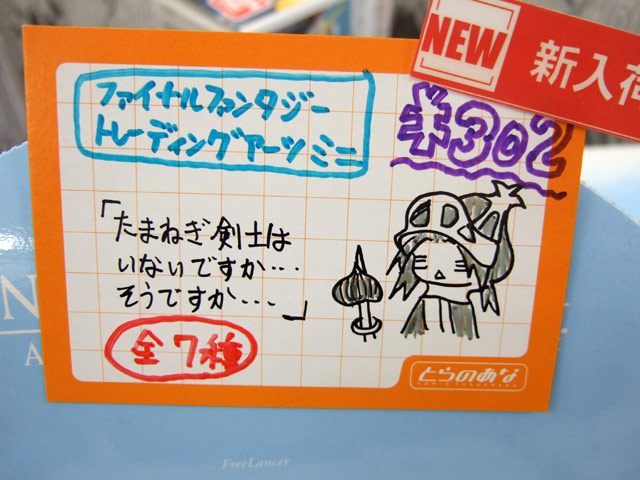 NEW
新入荷
ファイナルファンタジー
トレーディングアーツミニ
¥302
「たまねぎ剣士は
いないですか…
そうですか…」
全7種
とらのあな
FreeLancer